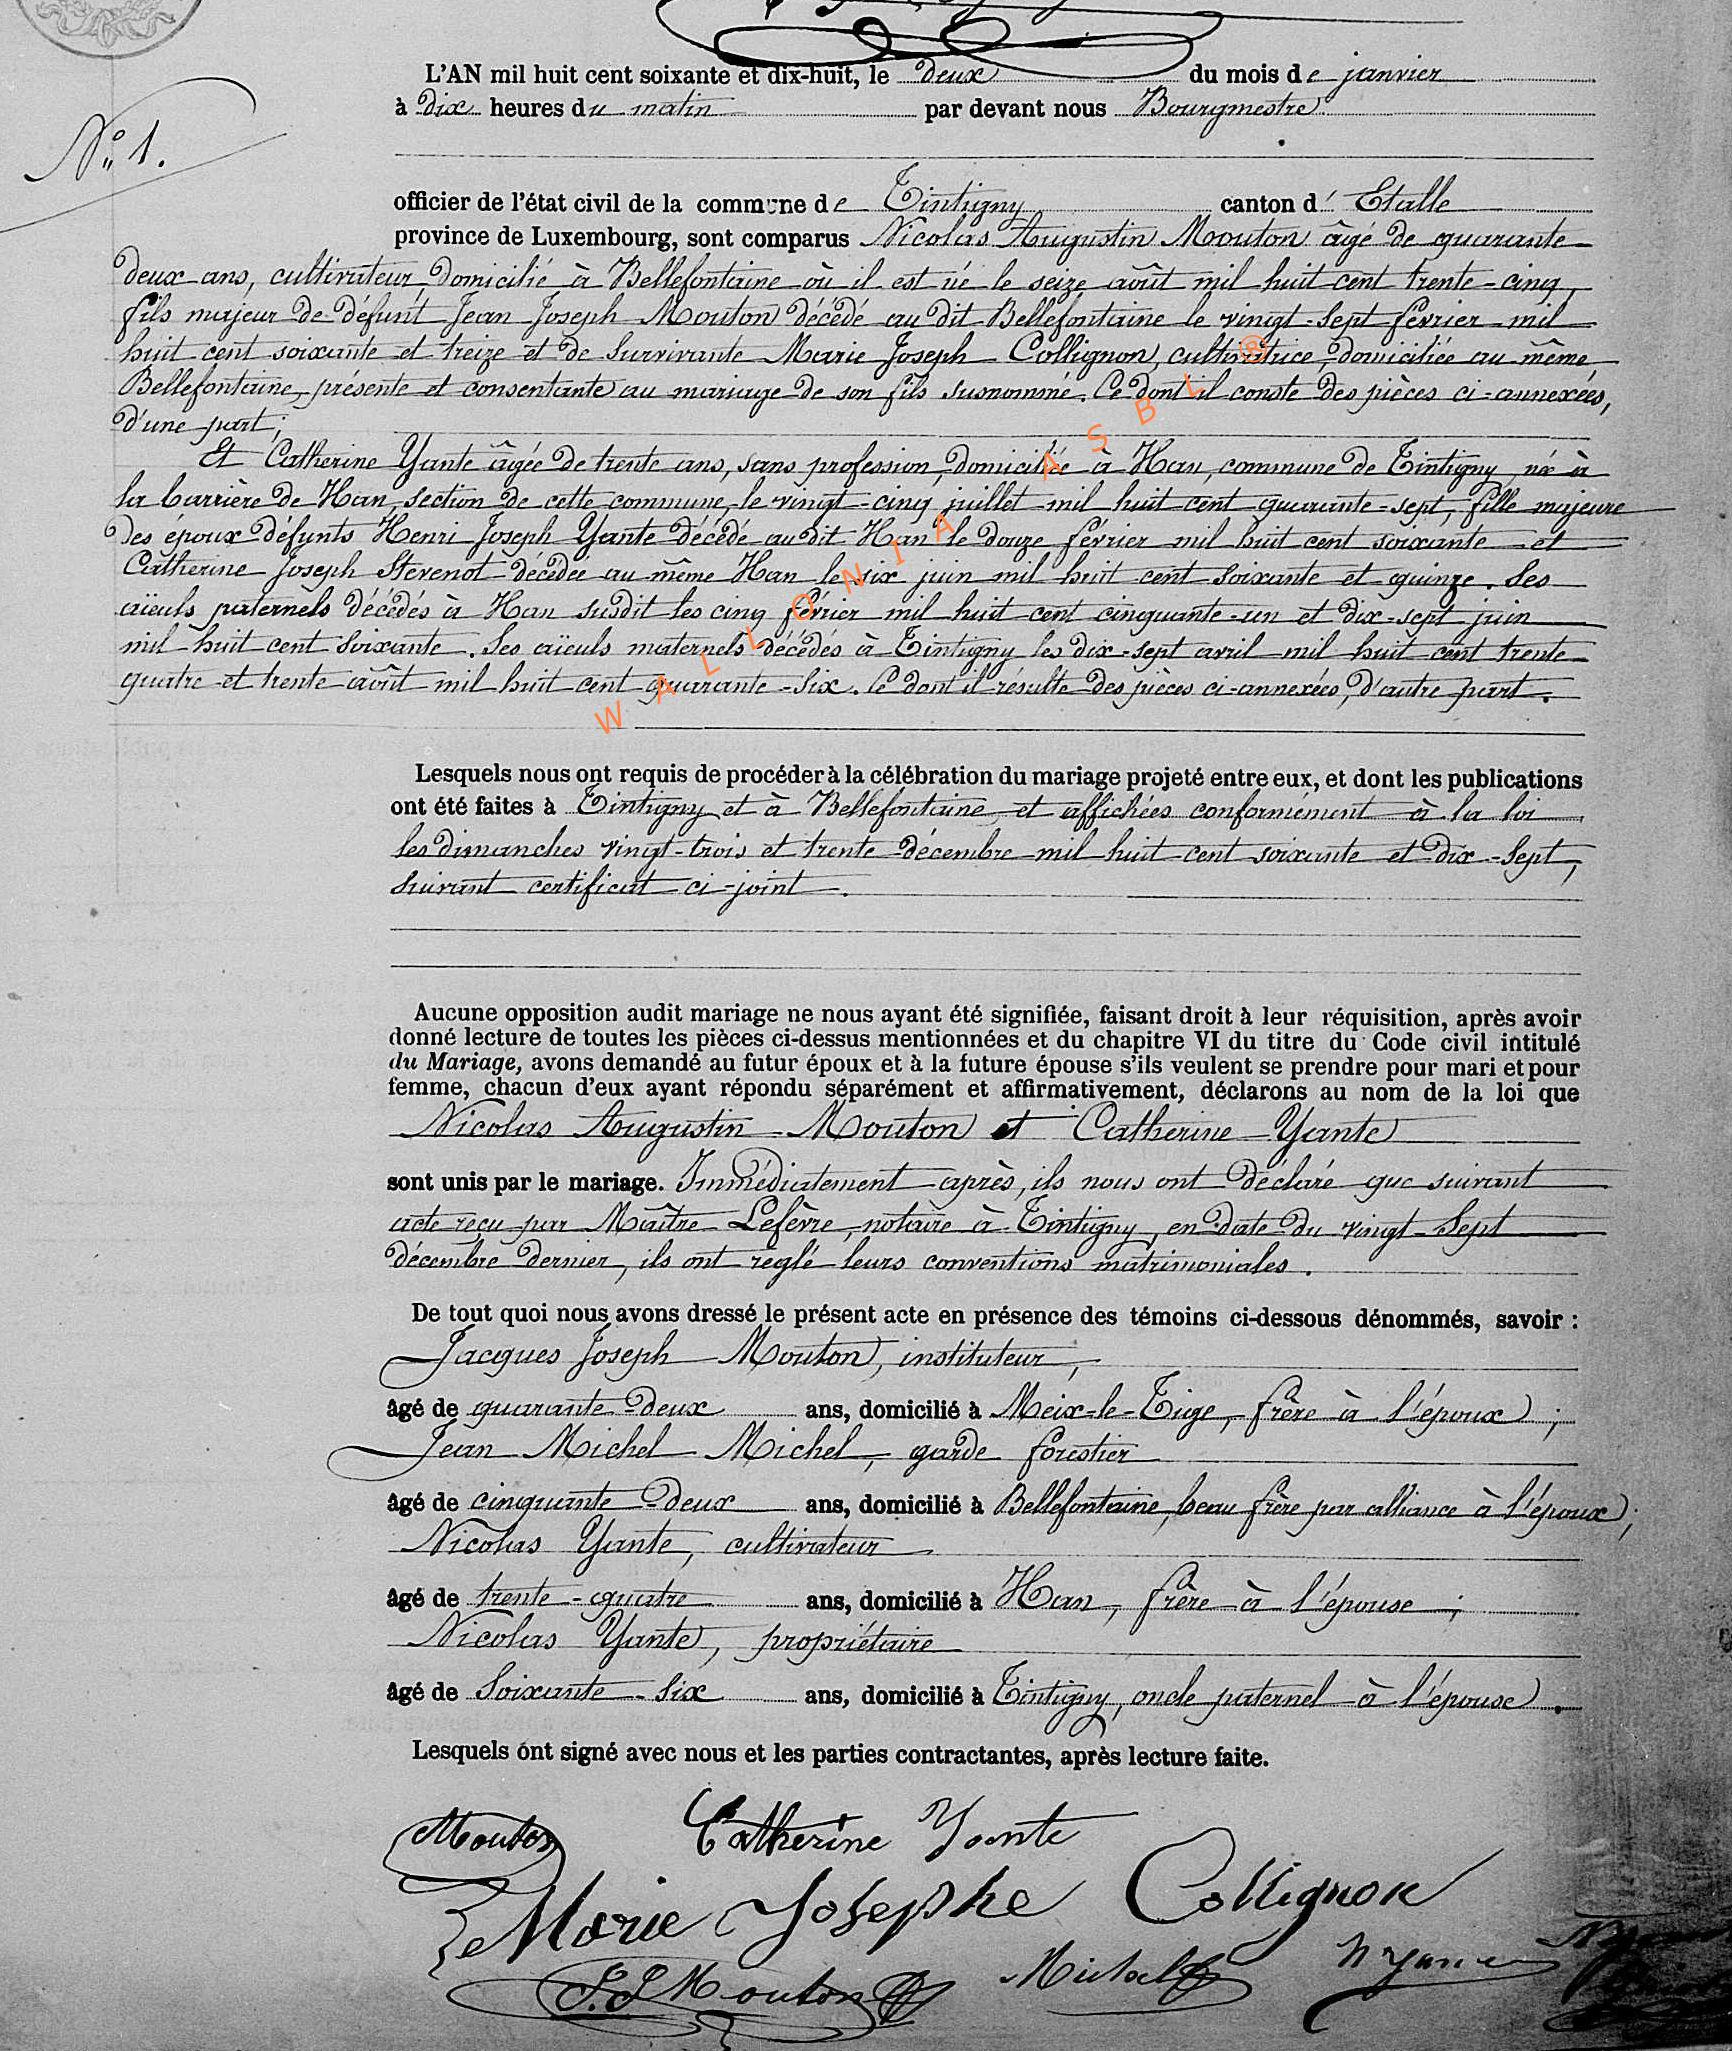 L'AN mil huit cent soixante et dix-huit, le deux du mois de janvier
à dix heures du matin par devant nous Bourgmestre
N° 1.
officier de l'état civil de la commune de Tintigny canton d' Etalle
province de Luxembourg, sont comparus Nicolas Augustin Mouton âgé de quarante
deux ans, cultivateur, domicilié à Bellefontaine où il est né le seize août mil huit cent trente-cinq,
fils majeur de défunt Jean Joseph Mouton décédé au dit Bellefontaine le vingt-sept février mil
huit cent soixante et treize et de survivante Marie Joseph Collignon, cultivatrice, domiciliée au même
Bellefontaine, présente et consentante au mariage de son fils susnommé. Ce dont il conste des pièces ci-annexées,
d'une part;
Et Catherine Yante âgée de trente ans, sans profession, domiciliée à Han, commune de Tintigny, née à
la barrière de Han, section de cette commune, le vingt-cinq juillet mil huit cent quarante-sept, fille majeure
des époux défunts Henri Joseph Yante décédé au dit Han le douze février mil huit cent soixante et
Catherine Joseph Stevenot décédée au même Han le six juin mil huit cent soixante et quinze. Ses
aïeuls paternels décédés à Han susdit les cinq février mil huit cent cinquante-un et dix-sept juin
mil huit cent soixante. Ses aïeuls maternels décédés à Tintigny les dix-sept avril mil huit cent trente
quatre et trente août mil huit cent quarante-six. Ce dont il résulte des pièces ci-annexées, d'autre part.
WALLONIA ASBL ®
Lesquels nous ont requis de procéder à la célébration du mariage projeté entre eux, et dont les publications
ont été faites à Tintigny et à Bellefontaine et affichées conformément à la loi
les dimanches vingt-trois et trente décembre mil huit cent soixante et dix-sept,
suivant certificat ci-joint.
Aucune opposition audit mariage ne nous ayant été signifiée, faisant droit à leur réquisition, après avoir
donné lecture de toutes les pièces ci-dessus mentionnées et du chapitre VI du titre du Code civil intitulé
du Mariage, avons demandé au futur époux et à la future épouse s'ils veulent se prendre pour mari et pour
femme, chacun d'eux ayant répondu séparément et affirmativement, déclarons au nom de la loi que
Nicolas Augustin Mouton et Catherine Yante
sont unis par le mariage. Immédiatement après, ils nous ont déclaré que suivant
acte reçu par Maître Lefèvre, notaire à Tintigny, en date du vingt-sept
décembre dernier, ils ont réglé leurs conventions matrimoniales.
De tout quoi nous avons dressé le présent acte en présence des témoins ci-dessous dénommés, savoir :
Jacques Joseph Mouton, instituteur,
âgé de quarante-deux ans, domicilié à Meix-le-Tige, frère à l'époux;
Jean Michel Michel, garde forestier
âgé de cinquante-deux ans, domicilié à Bellefontaine, beau frère par alliance à l'époux;
Nicolas Yante, cultivateur
âgé de trente-quatre ans, domicilié à Han, frère à l'épouse;
Nicolas Yante, propriétaire
âgé de soixante-six ans, domicilié à Tintigny, oncle paternel à l'épouse.
Lesquels ont signé avec nous et les parties contractantes, après lecture faite.
Mouton Catherine Yante
Marie Josephe Collignon
J.J Mouton Michel N Yante